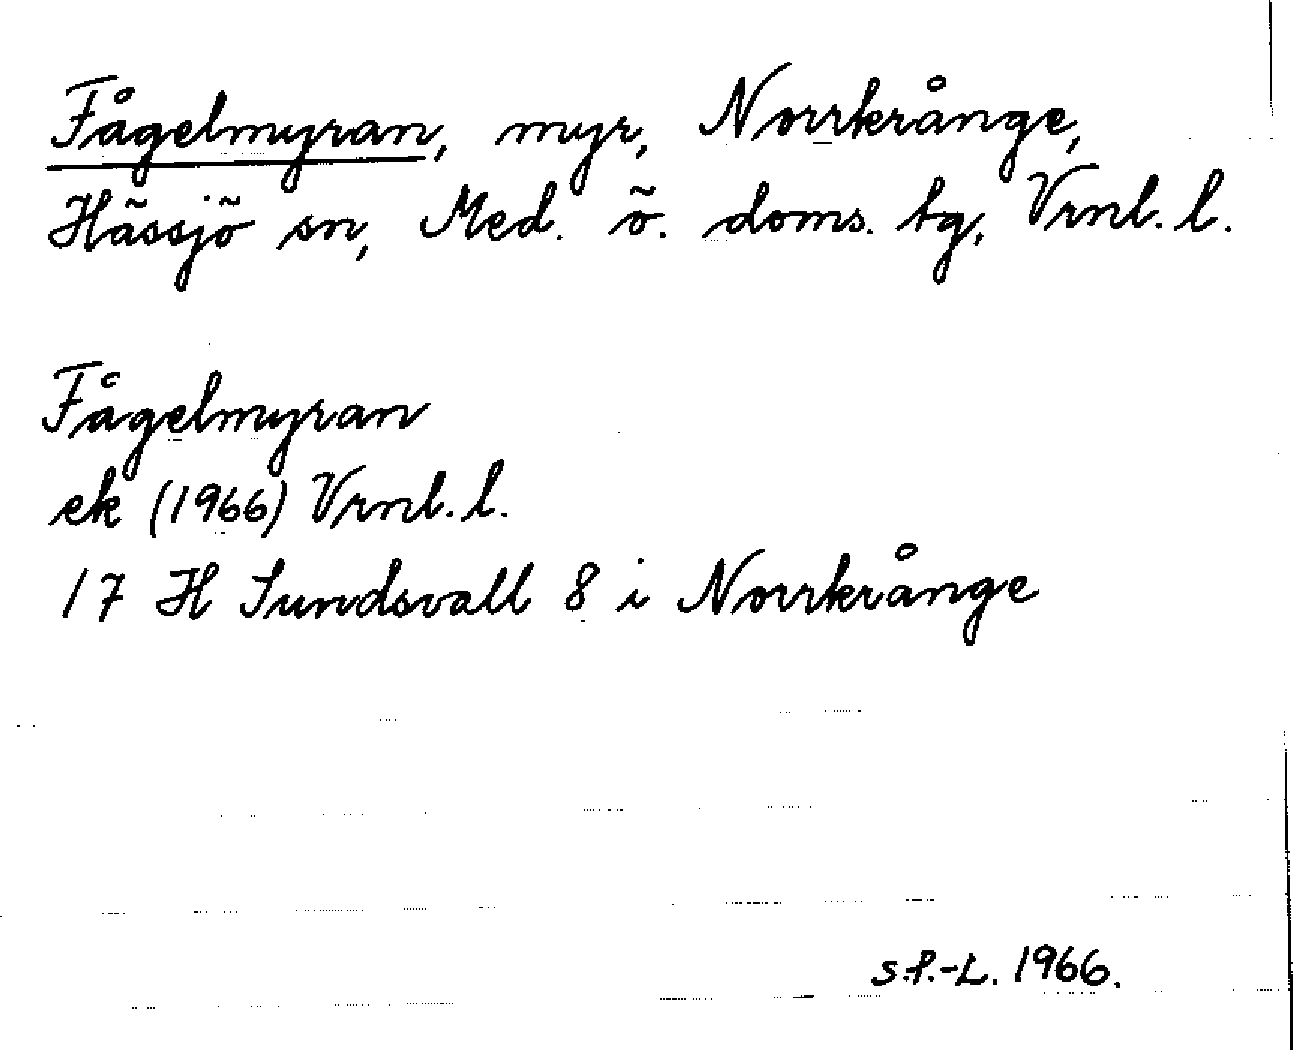 Fågelmyran, myr, Norrkrånge,
Hässjö sn, Med. ö. doms. tg, Vrnl. l.
Fågelmyran
ek (1966) Vrnl. l.
17 H Sundsvall 8 i Norrkrånge
S.P.-L. 1966.